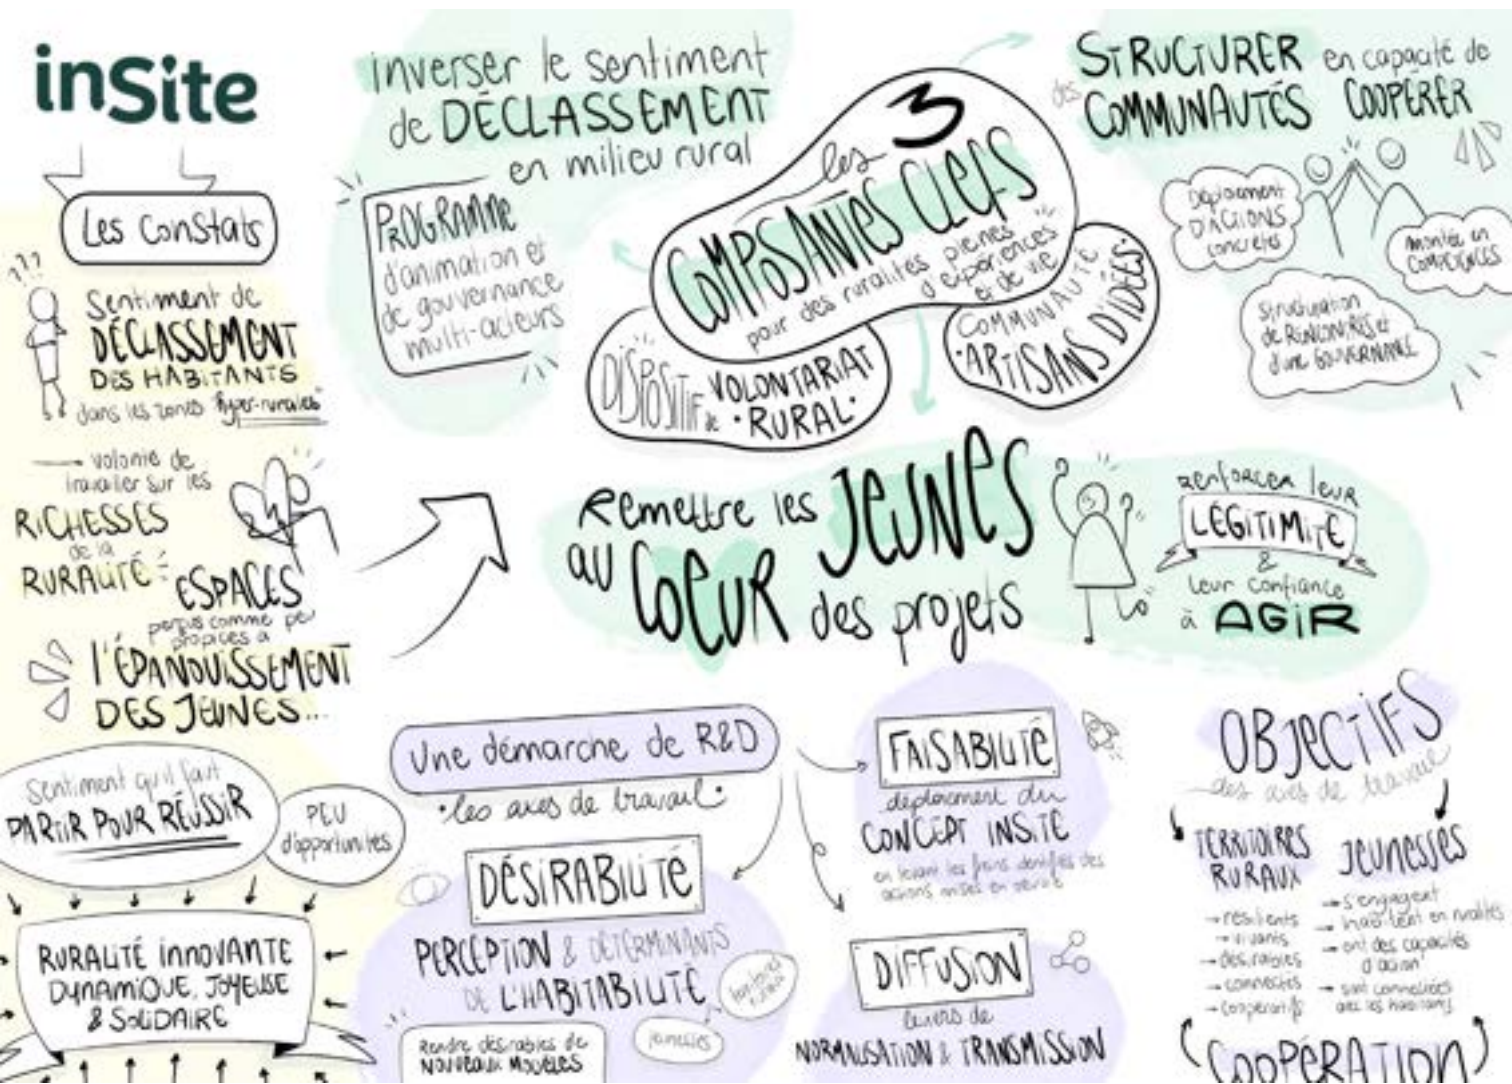 inSite
Les Constats
???
Sentiment de
DÉCLASSEMENT
DES HABITANTS
dans les zones "hyper-rurales"
volonté de
travailler sur les
RICHESSES
de la
RURALITÉ
ESPACES
perçus comme peu
propices à
l'ÉPANOUISSEMENT
DES JEUNES...
Sentiment qu'il faut
PARTIR POUR RÉUSSIR
PEU
d'opportunités
RURALITÉ innOVANTE
DYNAMIQUE, JOYEUSE
& SOLIDAIRE
inverser le sentiment
de DÉCLASSEMENT
en milieu rural
PROGRAMME
d'animation et
de gouvernance
multi-acteurs
les 3
COMPOSANTES CLEFS
pour des ruralités pleines
d'expériences
et de vie
DISPOSITIF de VOLONTARIAT
• RURAL •
COMMUNAUTÉ
• ARTISANS D'IDÉES •
STRUCTURER
des COMMUNAUTÉS
en capacité de
COOPÉRER
Déploiement
D'ACTIONS
concrètes
montée en
COMPÉTENCES
Structuration
de RENCONTRES et
d'une GOUVERNANCE
Remettre les JEUNES
au COEUR des projets
Renforcer leur
LÉGITIMITÉ
&
leur confiance
à AGIR
Une démarche de R&D
• les axes de travail •
DÉSIRABILITÉ
PERCEPTION & DÉTERMINANTS
DE L'HABITABILITÉ
jeunesses
Rendre désirables de
NOUVEAUX MODÈLES
FAISABILITÉ
déploiement du
CONCEPT INSITE
en levant les freins identifiés des
actions mises en œuvre
DIFFUSION
leviers de
NORMALISATION & TRANSMISSION
OBJECTIFS
des axes de travail
TERRITOIRES
RURAUX
→ résilients
→ vivants
→ désirables
→ connectés
→ coopératifs
JEUNESSES
→ s'engagent
→ habitent en ruralités
→ ont des capacités
d'action
→ sont connectées
avec les habitants
COOPÉRATION